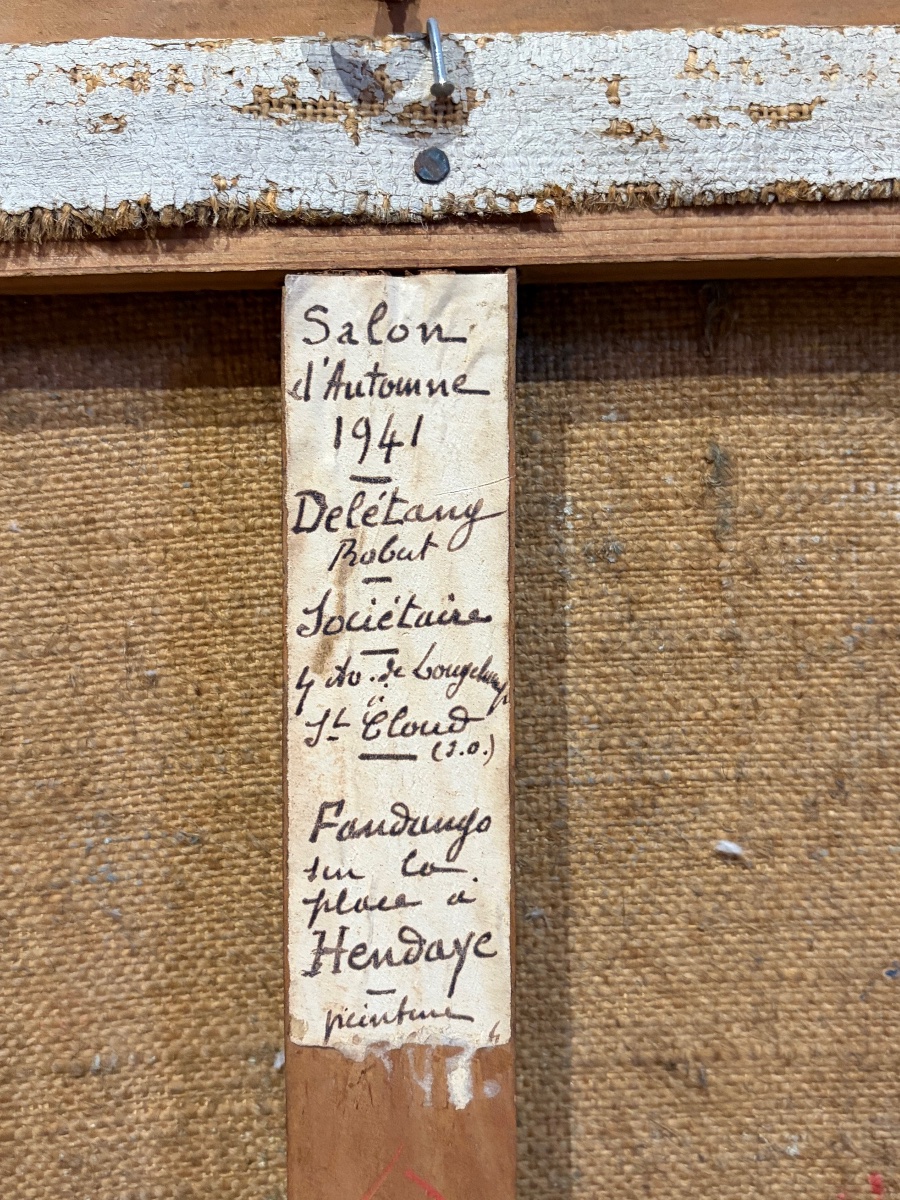 Salon
d'Automne
1941
Delétang
Robert
Sociétaire
4 Av. de Longchamp
St Cloud
(S.O.)
Fandango
sur la
place à
Hendaye
peinture